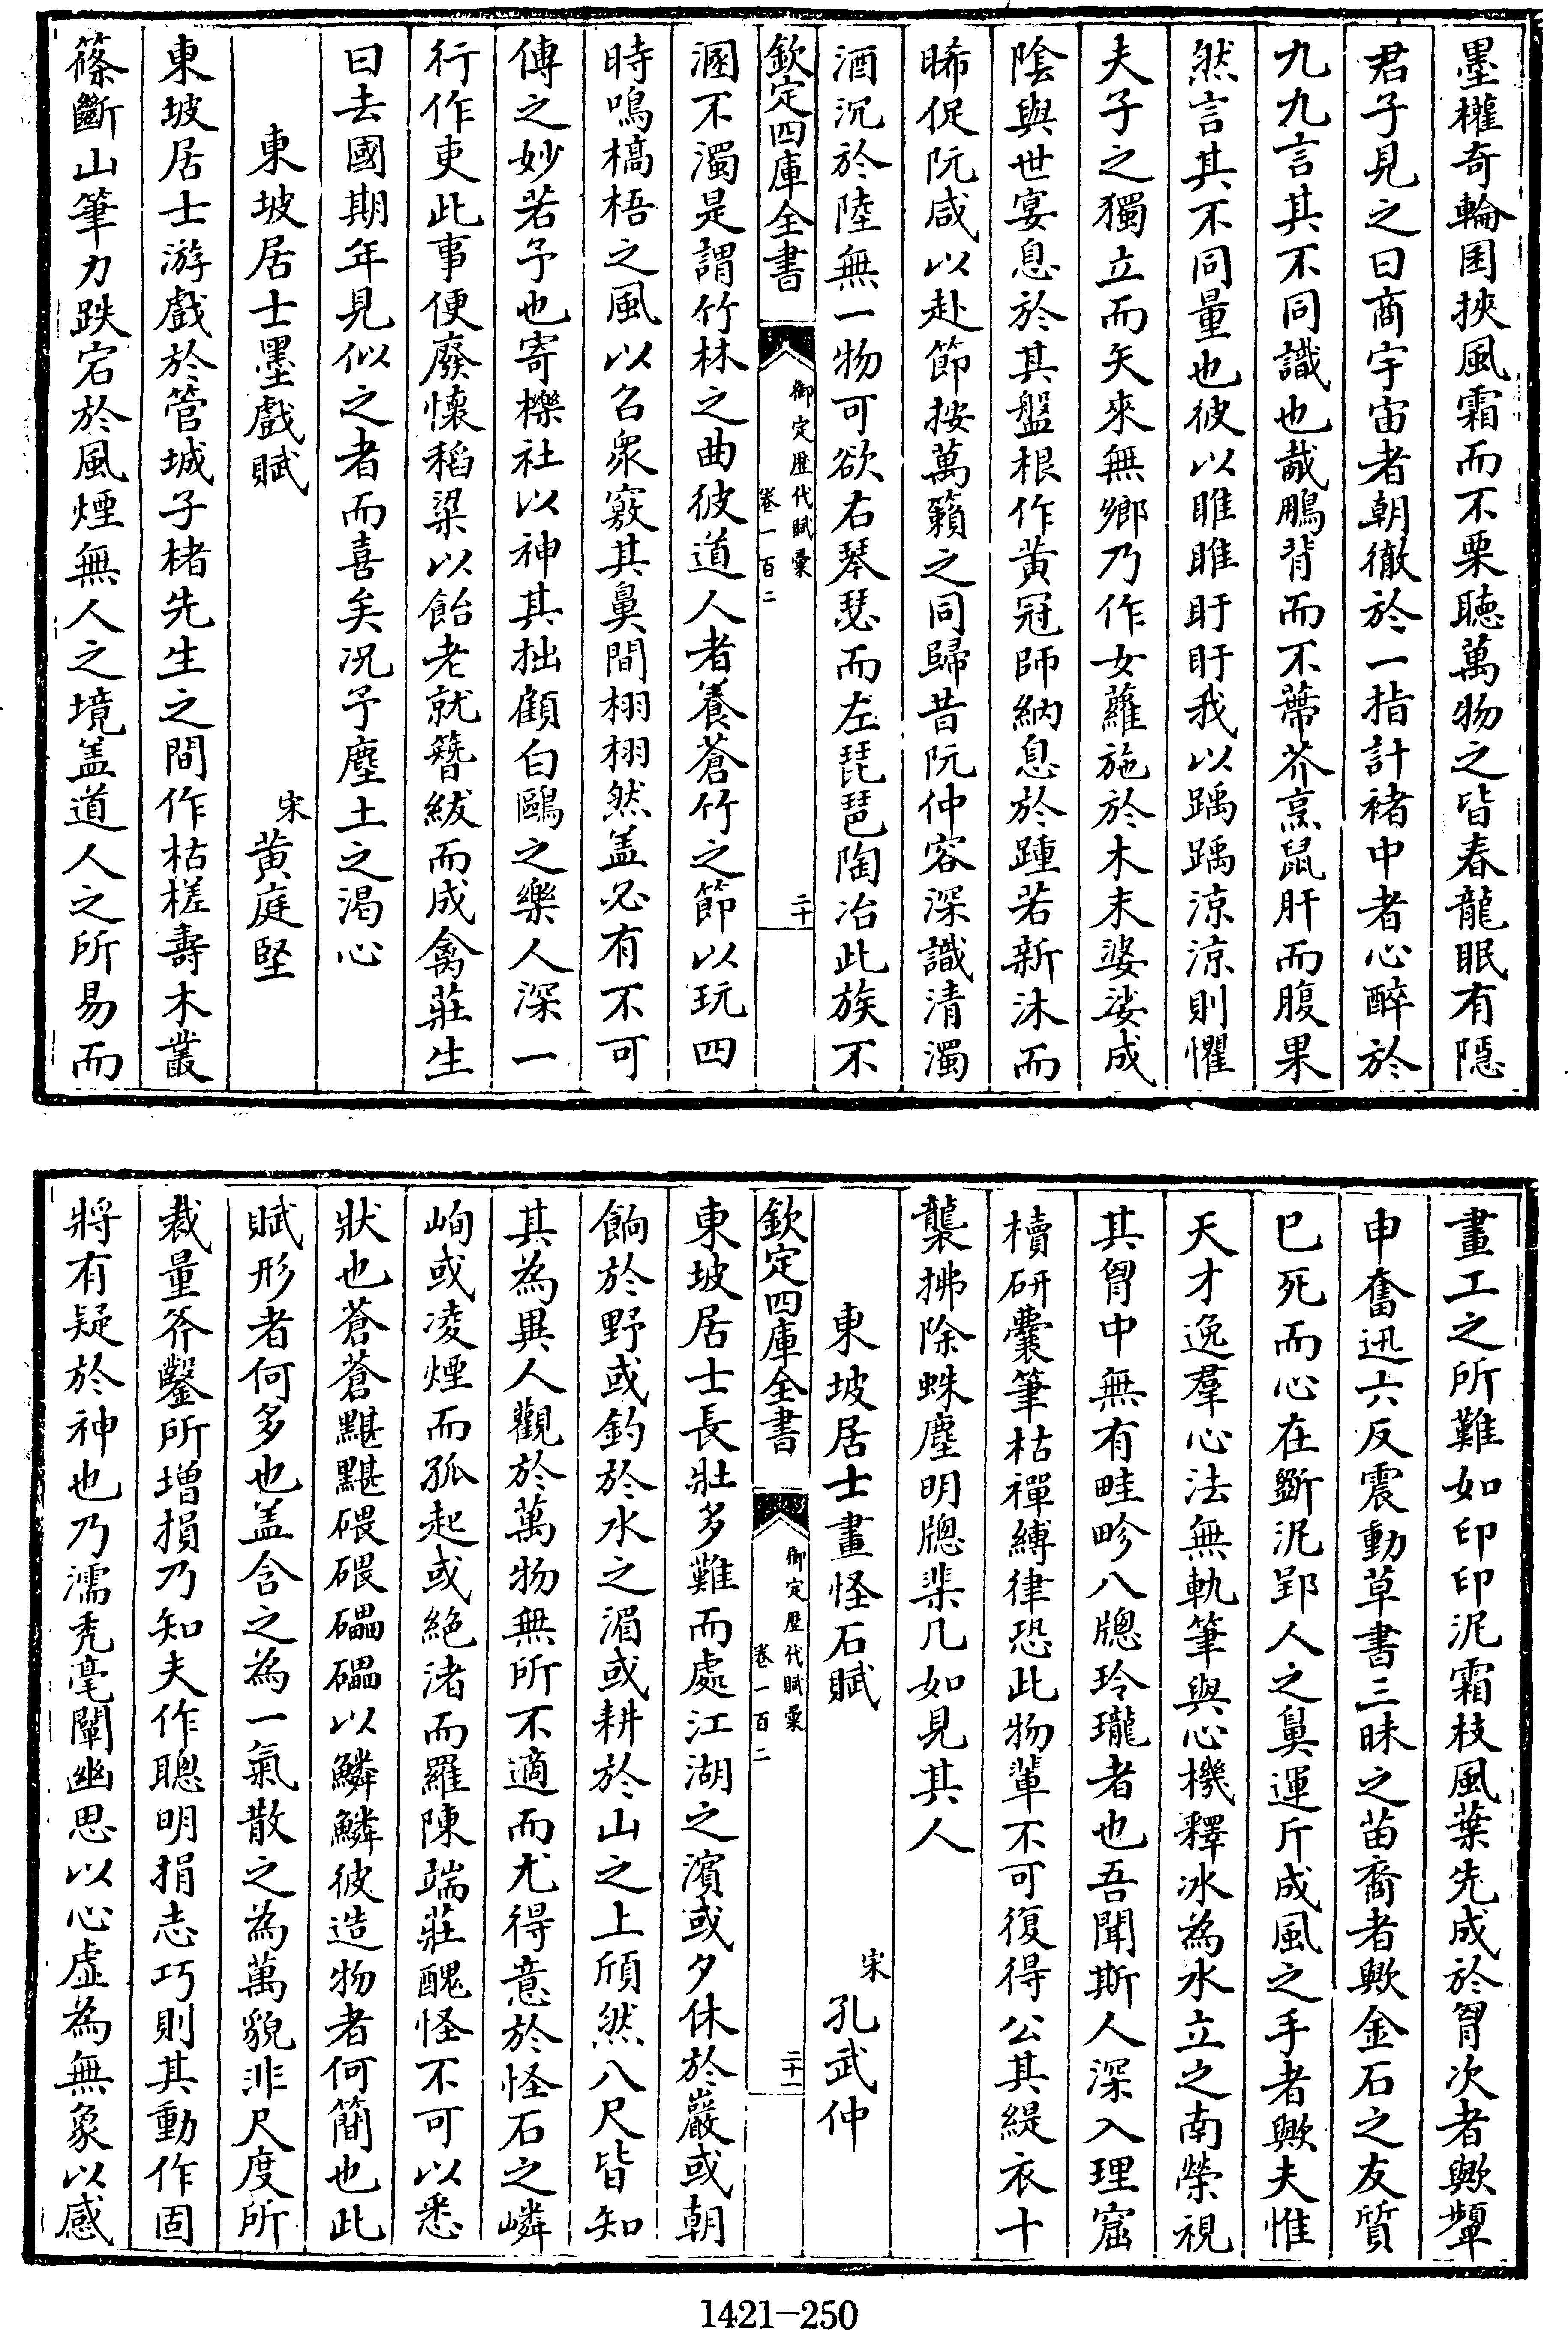 墨權奇輪囷挾風霜而不栗聽萬物之皆春龍眠有隱
君子見之曰商宇宙者朝徹於一指計褚中者心醉於
九九言其不同識也酨鵬背而不蔕芥烹鼠肝而腹果
然言其不同量也彼以睢睢盱盱我以踽踽涼涼則懼
夫子之獨立而矢來無鄉乃作女蘿施於木末婆娑成
陰與世宴息於其盤根作黄冠師納息於踵若新沐而
晞促阮咸以赴節按萬籟之同歸昔阮仲容深識清濁
酒沉於陸無一物可欲右琴瑟而左琵琶陶冶此族不
欽定四庫全書
御定歴代賦彙
卷一百二
二十
溷不濁是謂竹林之曲彼道人者養蒼竹之節以玩四
時鳴槁梧之風以召衆竅其鼻間栩栩然盖必有不可
傳之妙若予也寄櫟社以神其拙顧白鷗之樂人深一
行作吏此事便廢懷稻梁以飴老就簪紱而成禽莊生
曰去國期年見似之者而喜矣况予塵土之渴心
東坡居士墨戲賦
宋黄庭堅
東坡居士游戲於管城子楮先生之間作枯槎壽木叢
篠斷山筆力跌宕於風煙無人之境盖道人之所易而
畫工之所難如印印泥霜枝風葉先成於胷次者歟顰
申奮迅六反震動草書三昧之苗裔者歟金石之友質
已死而心在斵泥郢人之鼻運斤成風之手者歟夫惟
天才逸羣心法無軌筆與心機釋冰為水立之南榮視
其胷中無有畦畛八牕玲瓏者也吾聞斯人深入理窟
櫝研囊筆枯禪縛律恐此物輩不可復得公其緹衣十
襲拂除蛛塵明牕棐几如見其人
東坡居士畫怪石賦
宋孔武仲
欽定四庫全書
御定歴代賦彙
卷一百二
二十一
東坡居士長壯多難而處江湖之濱或夕休於巖或朝
餉於野或釣於水之湄或耕於山之上頎然八尺皆知
其為異人觀於萬物無所不適而尤得意於怪石之嶙
峋或凌煙而孤起或絶渚而羅陳端莊醜怪不可以悉
狀也蒼蒼黮黮碨碨礧礧以鱗鱗彼造物者何簡也此
賦形者何多也盖含之為一氣散之為萬貌非尺度所
裁量斧鑿所增損乃知夫作聰明捐志巧則其動作固
將有疑於神也乃濡秃毫闡幽思以心虚為無象以感
1421-250